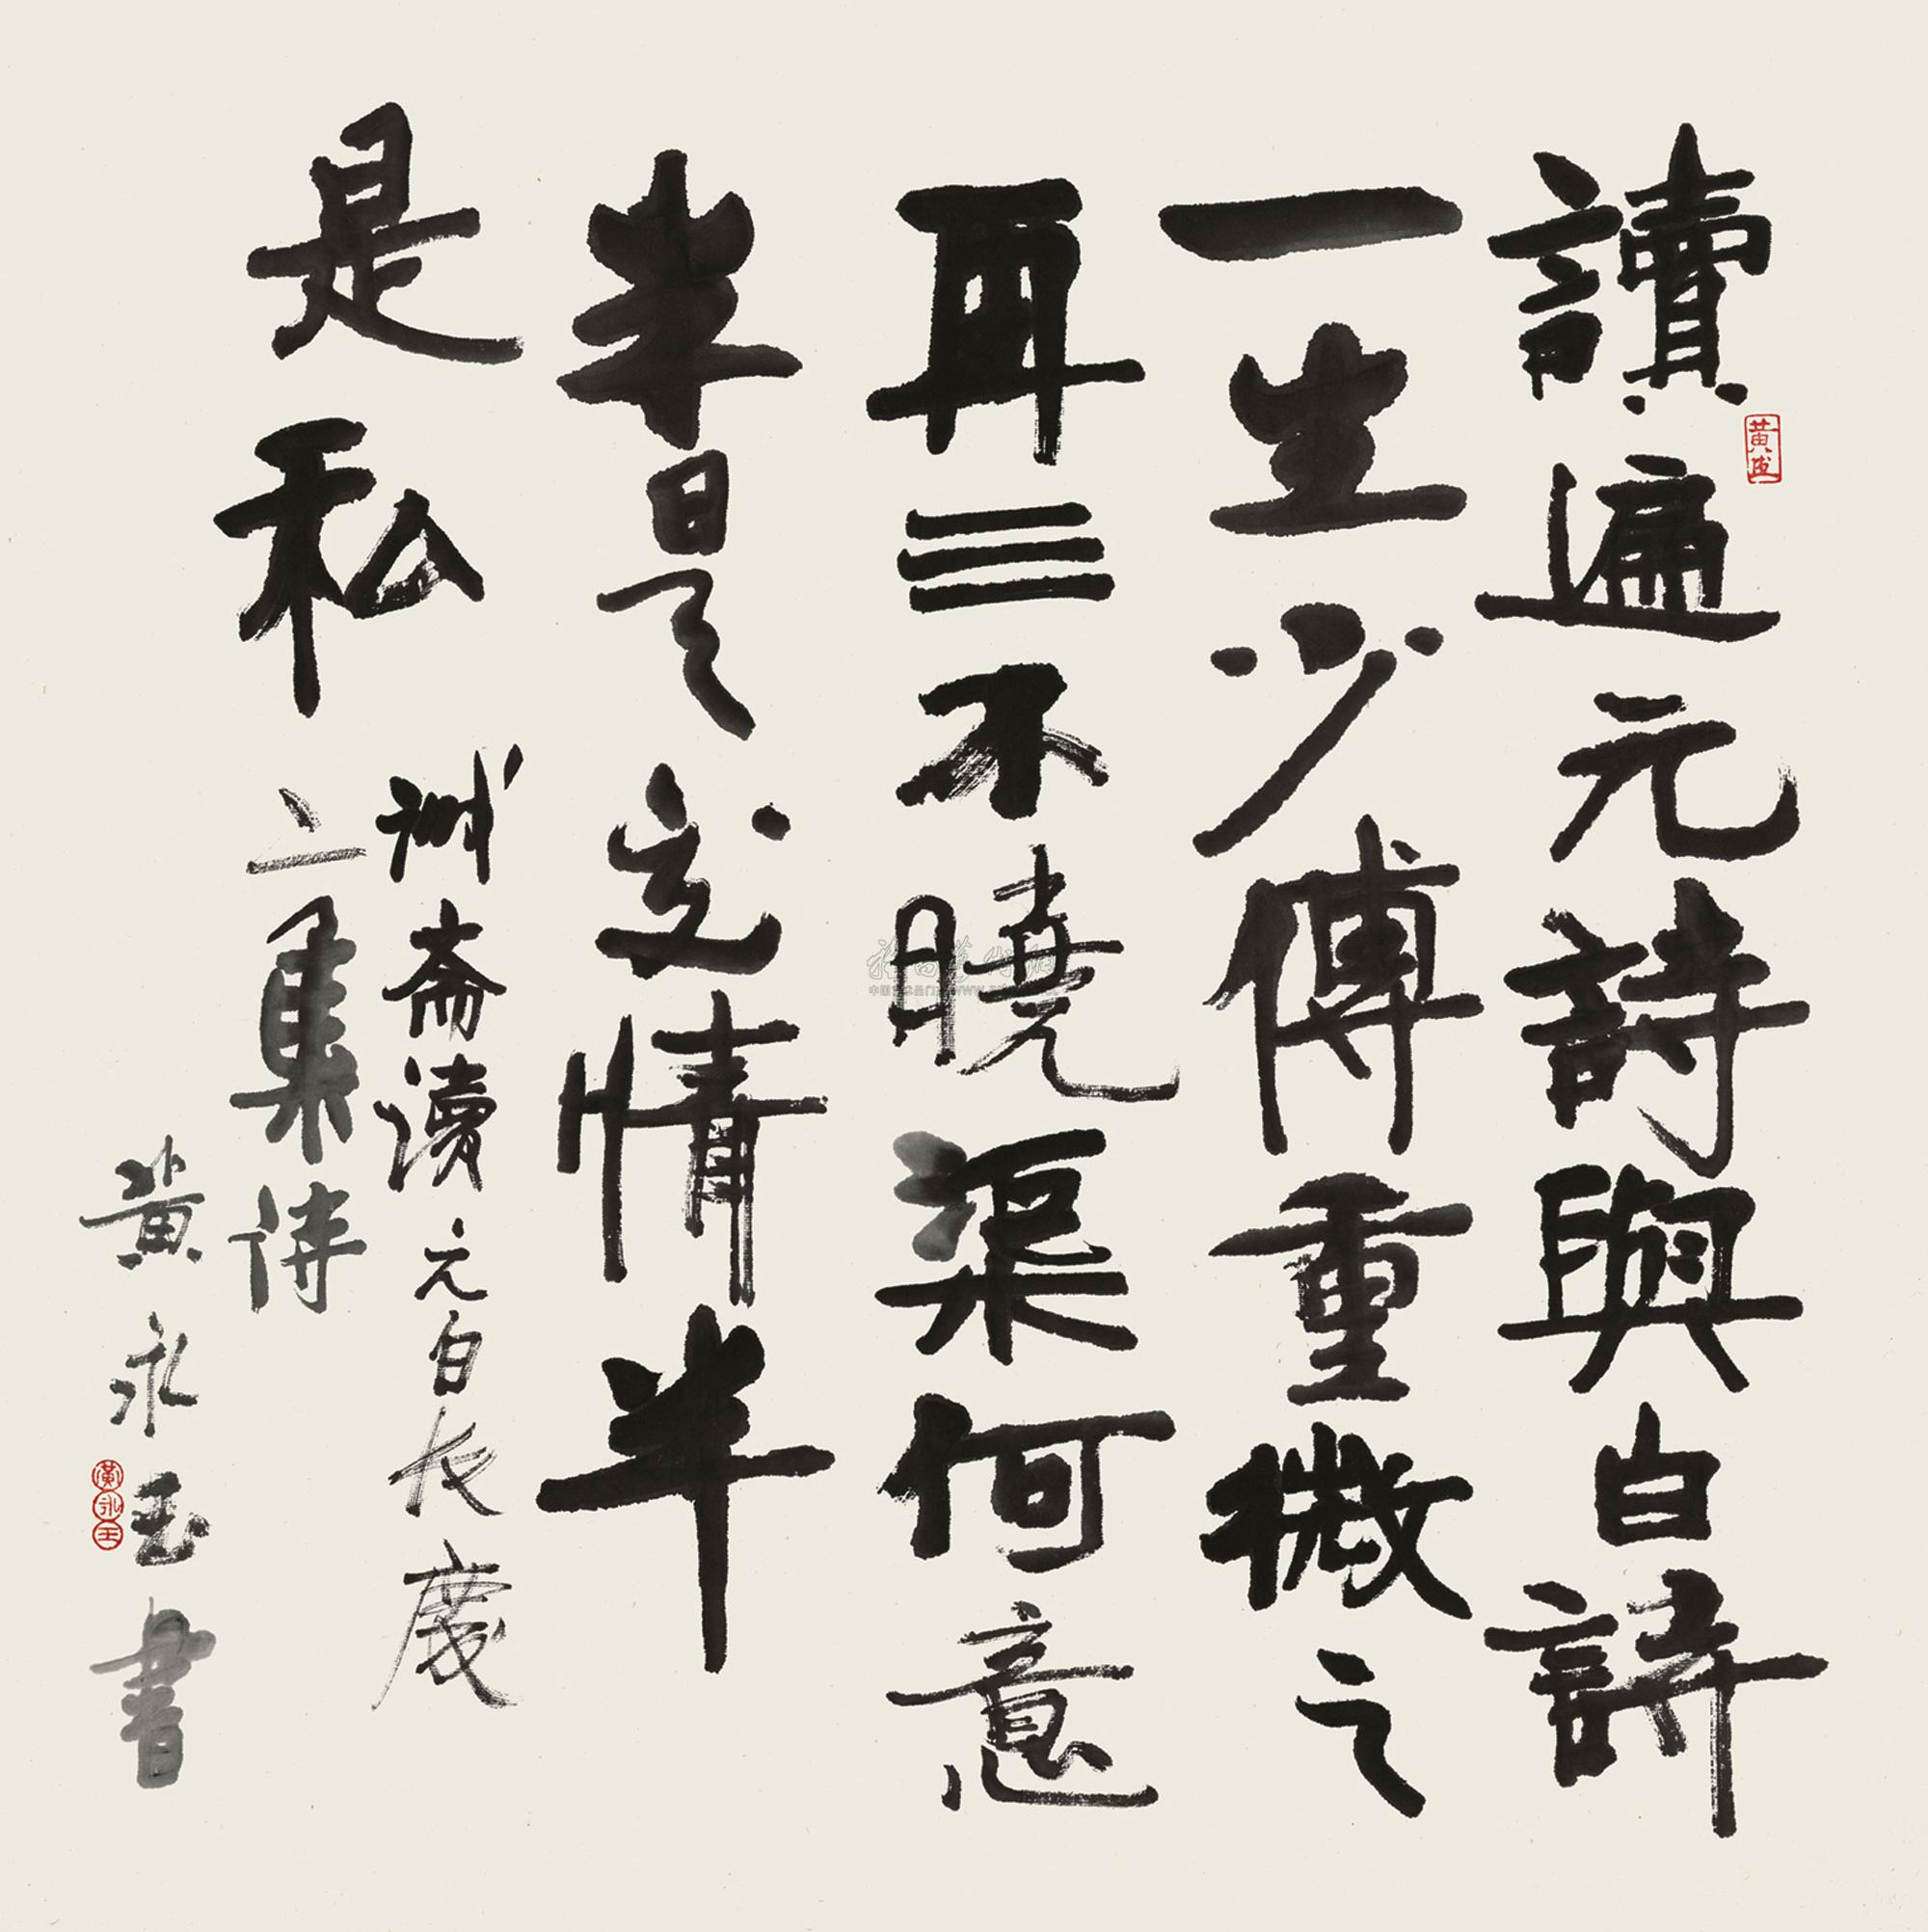 讀遍元詩與白詩
一生少傅重微之
再三不曉渠何意
半是交情半
是私
誠齋讀元白長慶
二集詩
黄永玉書
黃永玉